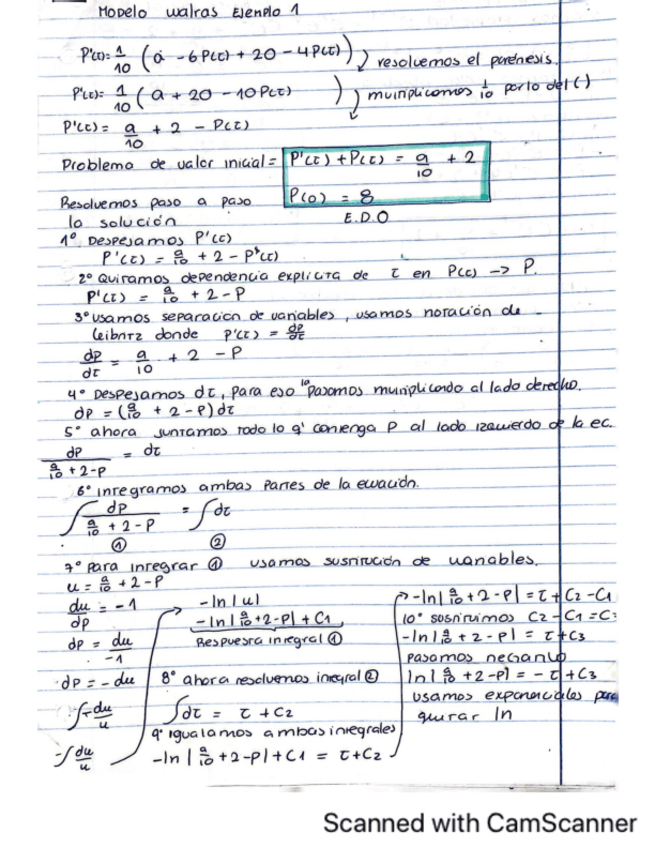 Modelo walras Ejemplo 1
P'(t)= 1/10 (a - 6P(t) + 20 - 4P(t)) resolvemos el parénesis
P'(t)= 1/10 (a + 20 - 10P(t)) multiplicamos 1/10 por lo del ( )
P'(t)= a/10 + 2 - P(t)
Problema de valor inicial = P'(t) + P(t) = a/10 + 2
P(0) = 8
Resolvemos paso a paso
la solución
E.D.O
1° Despejamos P'(t)
P'(t) = a/10 + 2 - P'(t)
2° Quitamos dependencia explicita de t en P(t) -> P.
P'(t) = a/10 + 2 - P
3° usamos separación de variables, usamos notación de
leibntz donde P'(t) = dp/dt
dp/dt = a/10 + 2 - P
4° Despejamos dt, para eso lo pasamos multiplicando al lado derecho.
dp = (a/10 + 2 - P) dt
5° ahora juntamos todo lo q' contenga P al lado izquierdo de la ec.
dp / a/10 + 2 - P = dt
6° integramos ambas partes de la ecuación.
∫ dp / a/10 + 2 - P = ∫ dt
① ②
7° Para integrar ① usamos sustitución de variables.
u = a/10 + 2 - P
du/dp = -1
dp = du/-1
dp = - du
∫ -du/u
-∫ du/u
-ln|u|
-ln|a/10 + 2 - P| + C1
Respuesta integral ①
8° ahora resolvemos integral ②
∫dt = t + C2
9° igualamos ambas integrales
-ln|a/10 + 2 - P| + C1 = t + C2
-ln|a/10 + 2 - P| = t + C2 - C1
10° sustituimos C2 - C1 = C
-ln|a/10 + 2 - P| = t + C3
pasamos negativo
ln|a/10 + 2 - P| = - t + C3
usamos exponenciales para
quitar ln
Scanned with CamScanner